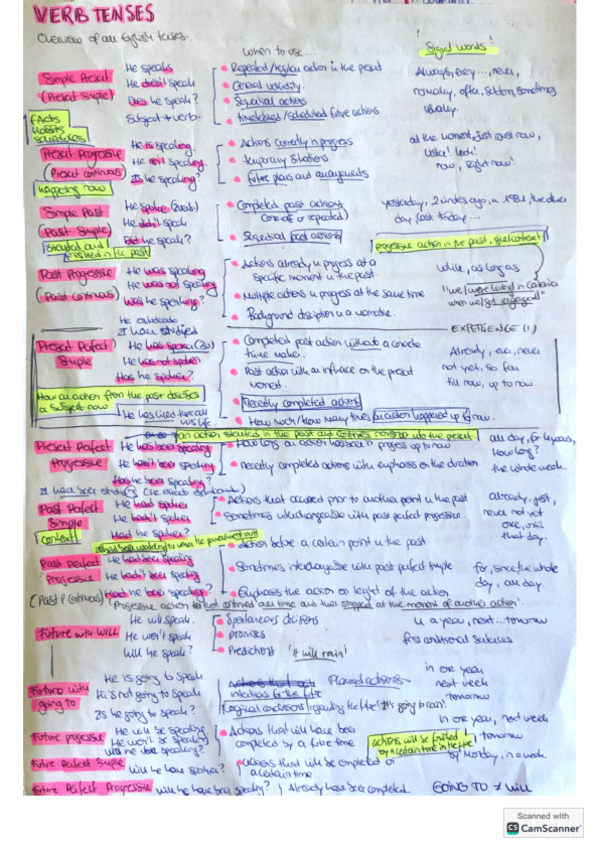 VERB TENSES
Overview of all English tenses
When to use...
"Signal words"
Simple Present
(Present Simple)
He speaks
He doesn't speak
Does he speak?
Subject + verb
Repeated/regular action in the present
General validity
Sequential actions
Timetabled/scheduled future actions
Always, every ..., never,
normally, often, seldom, sometimes
usually.
FACTS
HABITS
SCHEDULES
Present Progressive
(Present continuous)
Happening now
He is speaking
He isn't speaking
Is he speaking?
Actions currently in progress
temporary situations
Future plans and arrangements
at the moment, just, just now,
Listen! Look!
now, Right now!
Simple Past
(Past Simple)
Started and
finished in the past
He spoke
He didn't speak
Did he speak?
Completed past actions
(one-off or repeated)
Sequential past actions
yesterday, 2 weeks ago, in 1981, the other
day, last Friday...
progressive action in the past, give context
Past Progressive
(Past continuous)
He was speaking
He was not speaking
Was he speaking?
Actions already in progress at a
specific moment in the past.
Multiple actions in progress at the same time
Background description in a narrative.
while, as long as
"we were living in
when we got engaged"
I have studied
EXPERIENCE (1)
Present Perfect
Simple
He has spoken
He has not spoken
Has he spoken?
Completed past action without a concrete
time marker.
Past action with an influence on the present
moment.
Recently completed actions
How much/How many times an action happened up to now.
Already, ever, never
not yet, so far
till now, up to now.
How an action from the past describes
a subject now
He has lived here all
his life.
an action started in the past and continues non-stop up to the present.
Present Perfect
Progressive
He has been speaking
He hasn't been speaking
Has he been speaking?
How long an action has been in progress up to now
Recently completed actions with emphasis on the duration
all day, for 4 years,
How long?
the whole week.
Past Perfect
Simple
context
He had spoken
He hadn't spoken
Had he spoken?
Actions that occurred prior to another point in the past
Sometimes interchangeable with past perfect progressive.
already, just,
never not yet
once, until
that day.
Past perfect
Progressive
He had been speaking
He hadn't been speaking
Had he been speaking?
Action before a certain point in the past
Sometimes interchangeable with past perfect simple
Emphasis the action or length of the action
for, since, the whole
day, all day.
'Progressive action that continued all time and then stopped at the moment of another action'
Future with WILL
He will speak.
He won't speak
Will he speak?
Spontaneous decisions
promises
Predictions 'It will rain'
in a year, next ... tomorrow
first conditional sentences
Future with
going to
He is going to speak
He's not going to speak
Is he going to speak?
Planned actions
intentions for the future
Logical conclusions regarding the future "It's going to rain".
in one year
next week
tomorrow
Future progressive
He will be speaking
He won't be speaking
Will he be speaking?
Actions that will have been
completed by a future time
in one year, next week
tomorrow
actions will be finished
by a certain time in the future
Future Perfect Simple
Will he have spoken?
Actions that will be completed at
a certain time
by Monday, in a week
Future Perfect Progressive
Will he have been speaking?
Already have been completed.
GOING TO ≠ WILL
Scanned with
CS CamScanner